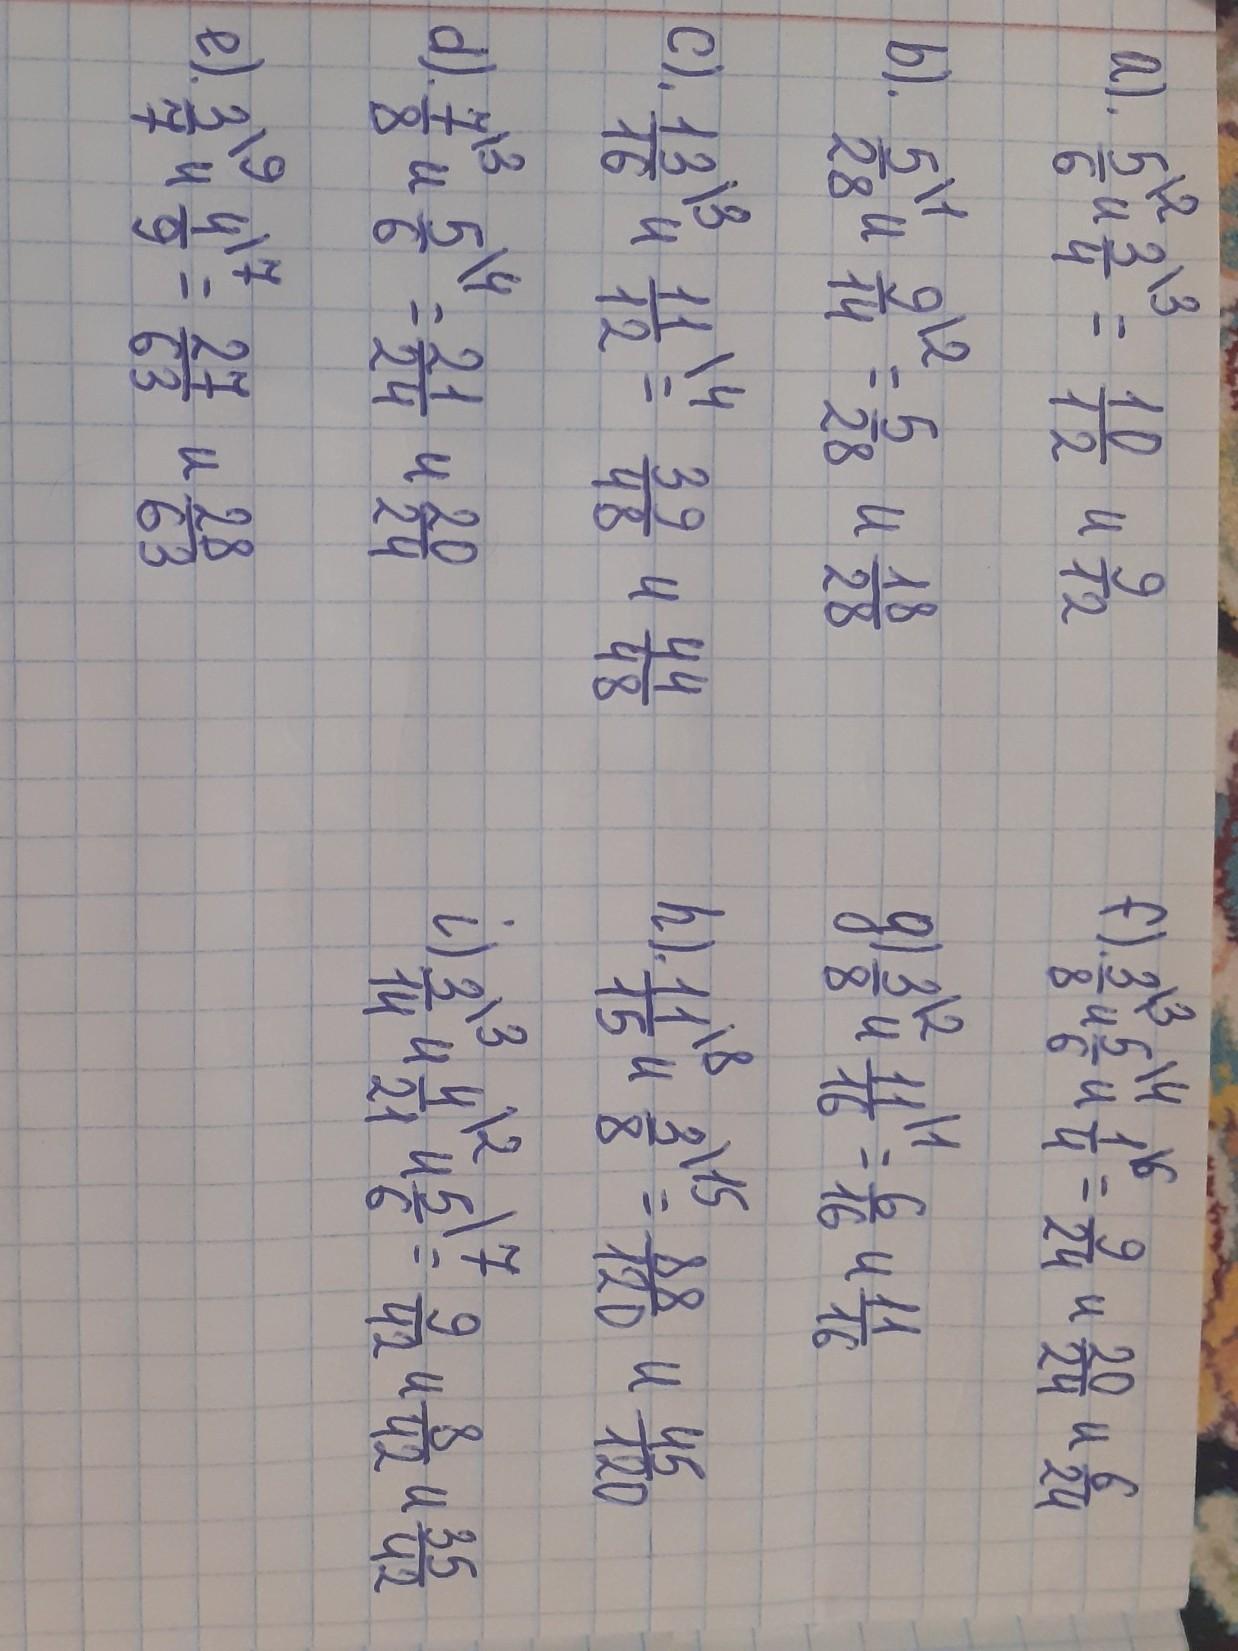 a). 5/6\2 и 3/4\3 = 10/12 и 9/12
b). 5/28\1 и 9/14\2 = 5/28 и 18/28
c). 13/16\3 и 11/12\4 = 39/48 и 44/48
d). 7/8\3 и 5/6\4 = 21/24 и 20/24
e). 3/7\9 и 4/9\7 = 27/63 и 28/63
f). 3/8\3 и 5/6\4 и 1/4\6 = 9/24 и 20/24 и 6/24
g) 3/8\2 и 11/16\1 = 6/16 и 11/16
h). 11/15\8 и 3/8\15 = 88/120 и 45/120
i) 3/14\3 и 4/21\2 и 5/6\7 = 9/42 и 8/42 и 35/42